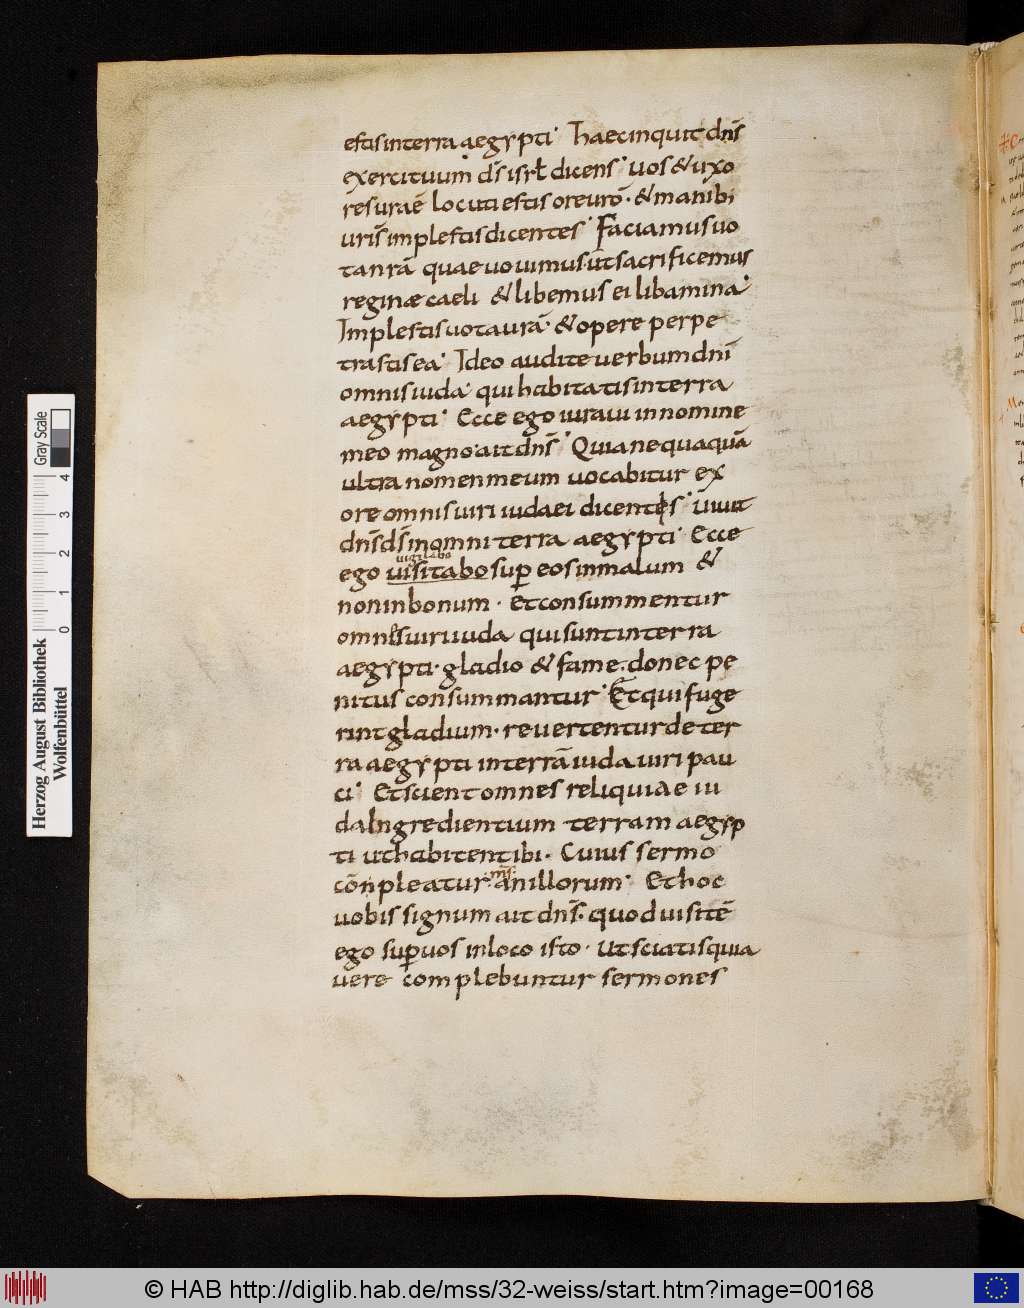 estis in terra aegypti· Haec inquit dn̄s
exercituum· ds̄ isrł dicens· uos & uxo
res uraē locuti estis ore urō· & manib;
uris̄ implestis dicentes· Faciamus uo
ta nrā quae uouimus· ut sacrificemus
reginæ caeli & libemus ei libamina·
Implestis uota urā· & opere perpe
trastis ea· Ideo audite uerbum dnī
omnis iuda· qui habitatis in terra
aegypti· Ecce ego iuraui in nomine
meo magno· ait dn̄s· Quia nequaquā
ultra nomen meum uocabitur ex
ore omnis uiri iudaei dicentis· uiuit
dn̄s ds̄ in omni terra aegypti· Ecce
uigilabo
ego uisitabo sup eos in malum &
non in bonum· Et consummentur
omnes uiri iuda qui sunt in terra
aegypti· gladio & fame· donec pe
nitus consummantur· Et qui fuge
rint gladium· reuertentur de ter
ra aegypti in terrā iuda uiri pau
ci· Et scient omnes reliquiae iu
da ingredientium terram aegyp
ti ut habitent ibi· Cuius sermo
cōnpleatur· an illorum· Et hoc
uobis signum ait dn̄s· quod uisitē
ego sup uos in loco isto· Ut sciatis quia
uere complebuntur sermones
Gray Scale
0 1 2 3 4
Herzog August Bibliothek
Wolfenbüttel
© HAB http://diglib.hab.de/mss/32-weiss/start.htm?image=00168